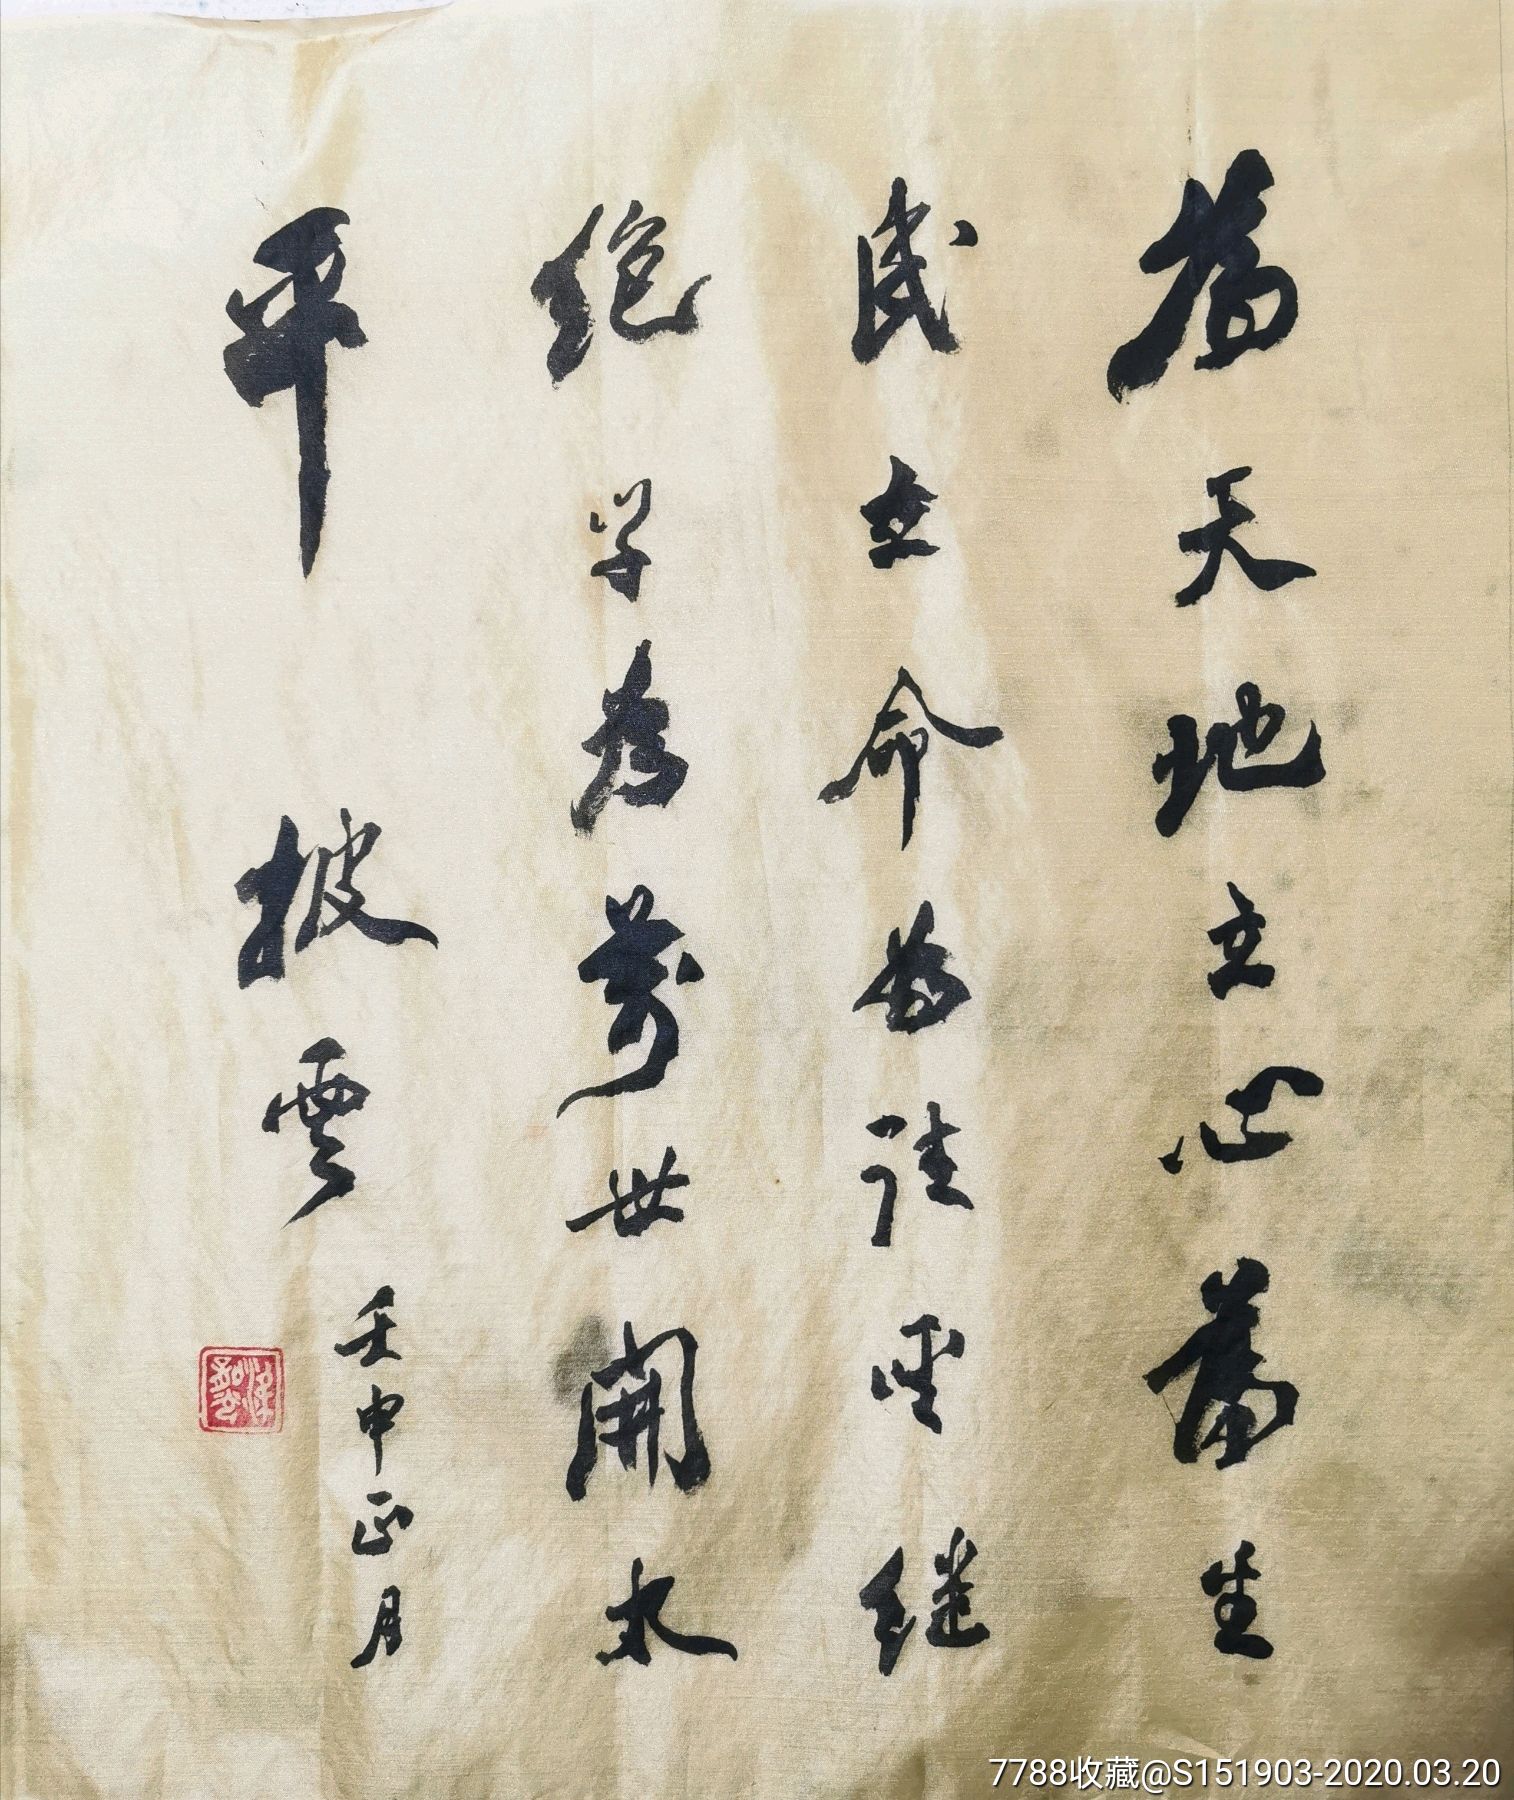 為天地立心為生
民立命为往聖继
绝学为萬世開太
平
披雲
壬申正月
7788收藏@S151903-2020.03.20